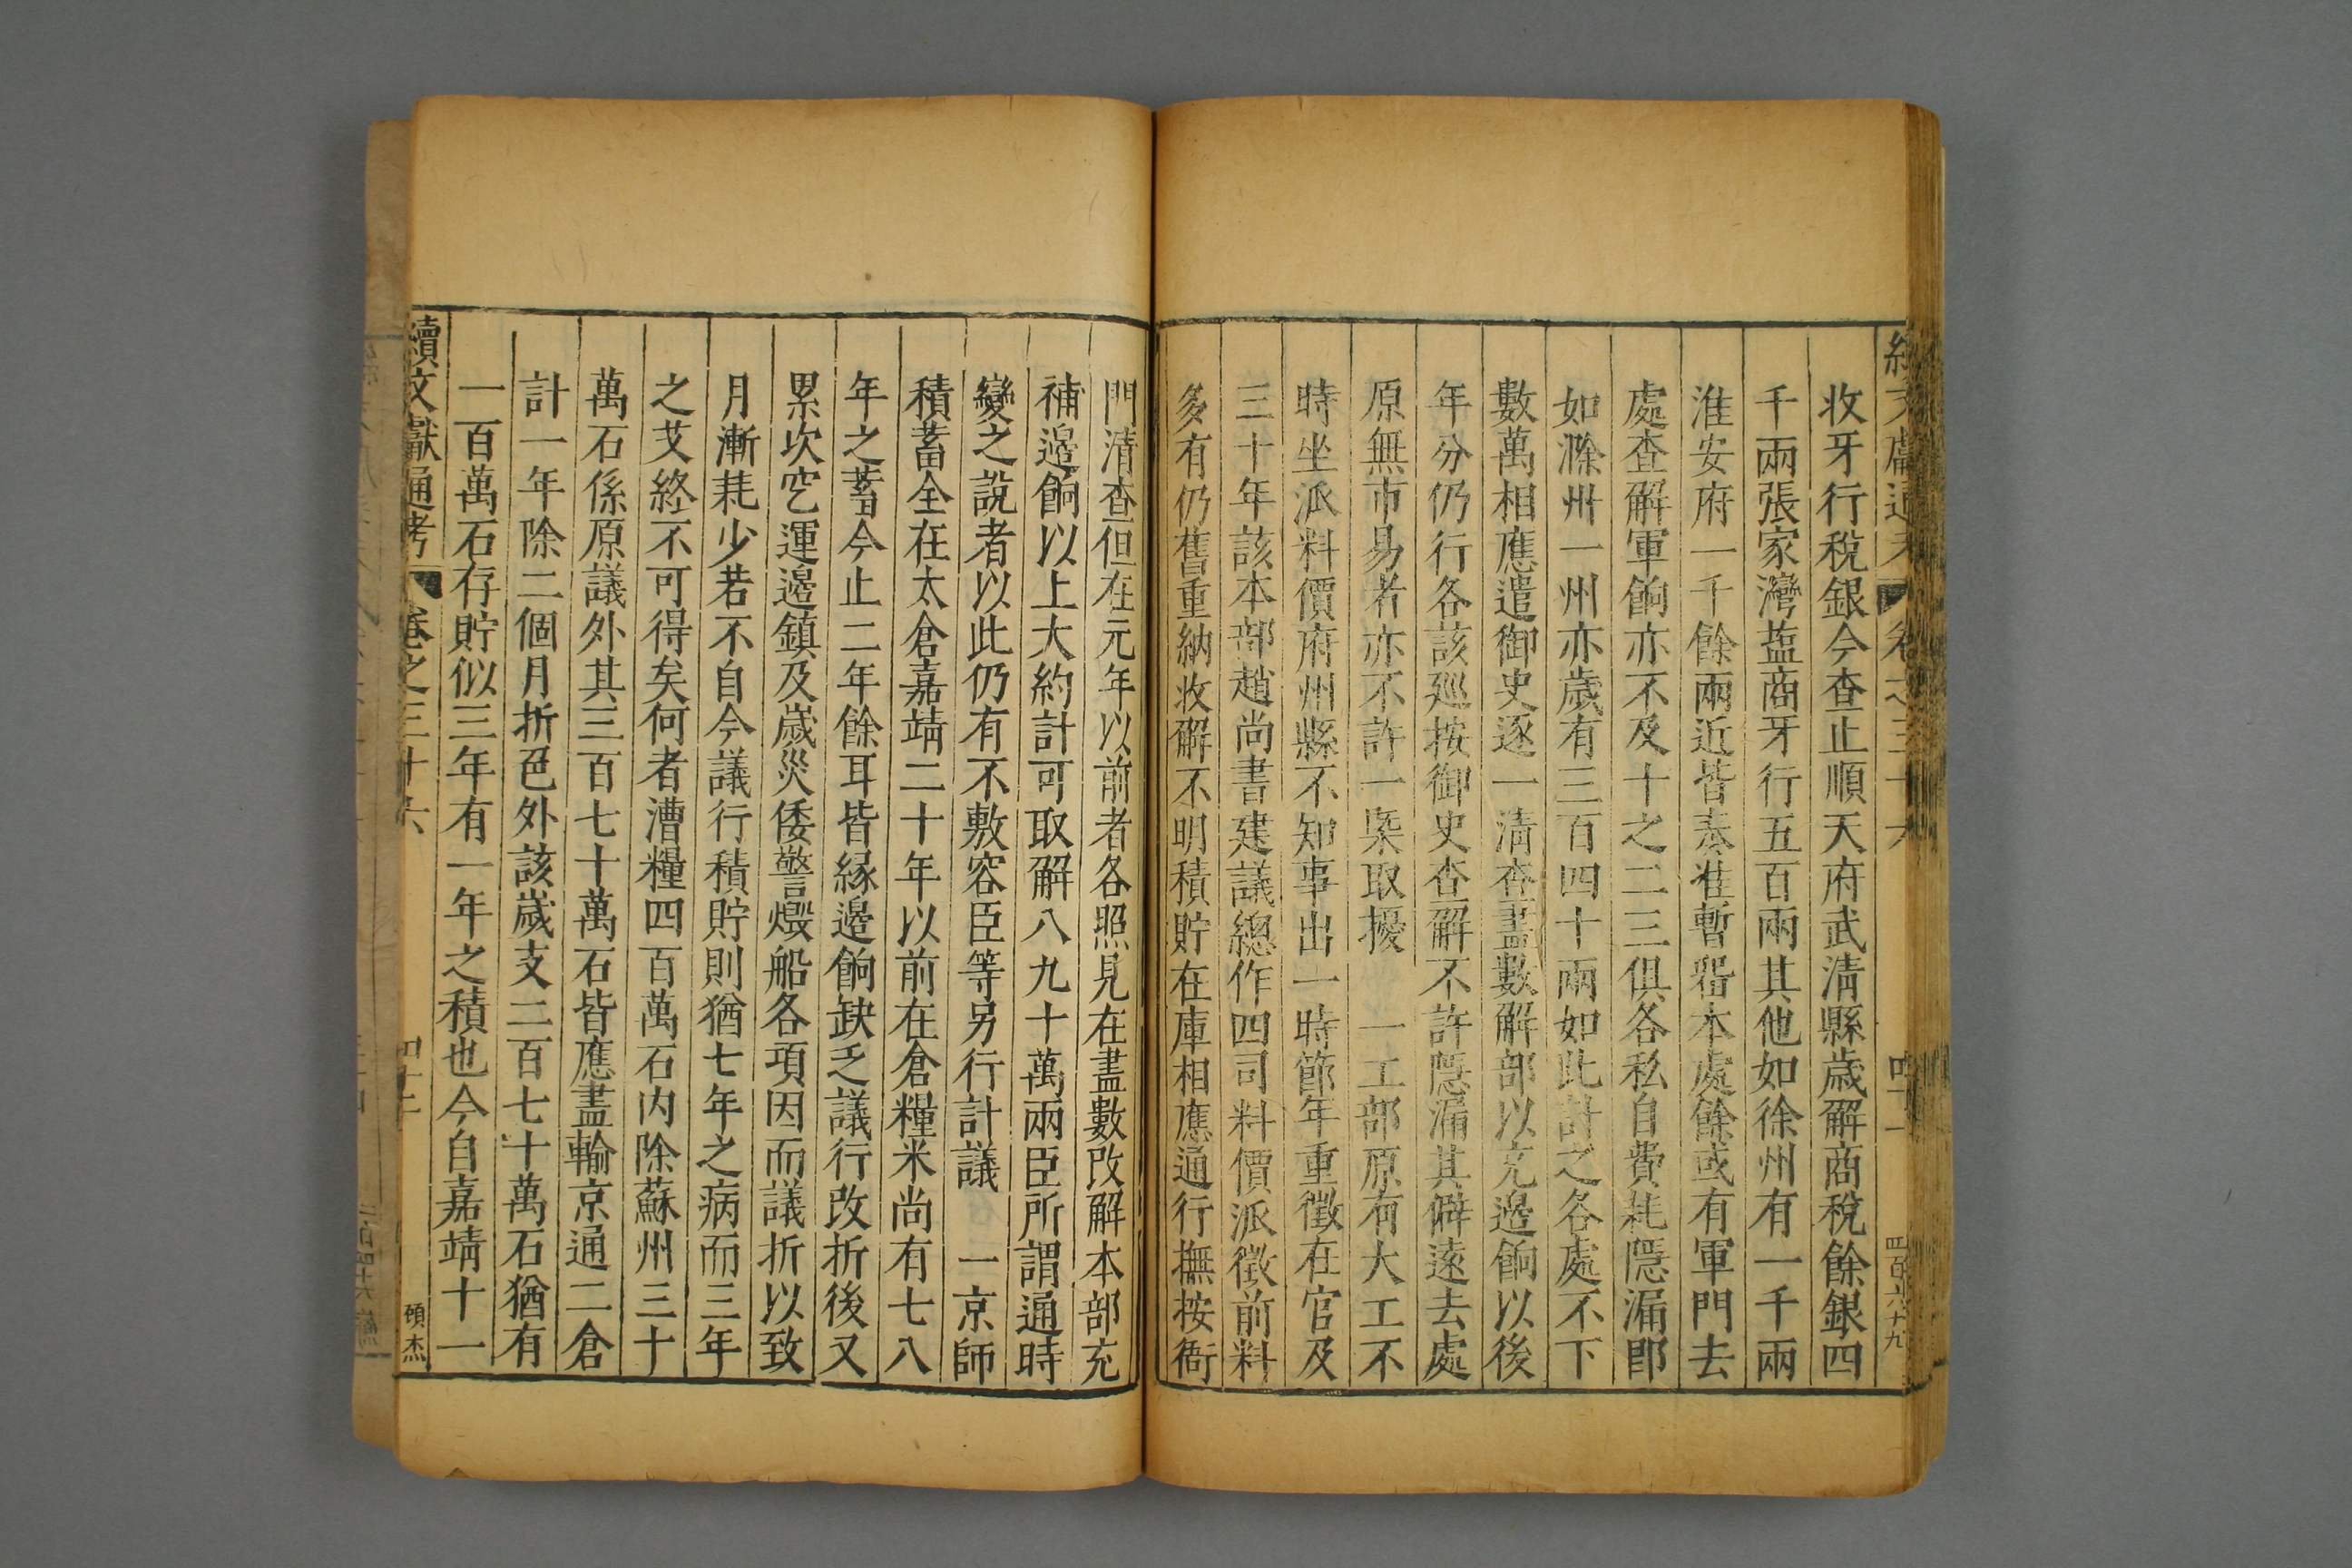 續文獻通考 卷之三十六 四十一 四百六十九
收牙行稅銀今查止順天府武清縣歲解商稅餘銀四
千兩張家灣塩商牙行五百兩其他如徐州有一千兩
淮安府一千餘兩近皆奏准暫留本處餘或有軍門去
處查解軍餉亦不及十之二三俱各私自費耗隱漏即
如滁州一州亦歲有三百四十兩如此計之各處不下
數萬相應遣御史逐一清查盡數解部以充邊餉以後
年分仍行各該廵按御史查解不許隱漏其僻遠去處
原無市易者亦不許一槩取擾 一工部原有大工不
時坐派料價府州縣不知事出一時節年重徵在官及
三十年該本部趙尚書建議總作四司料價派徵前料
多有仍舊重納收解不明積貯在庫相應通行撫按衙
門清查但在元年以前者各照見在盡數改解本部充
補邊餉以上大約計可取解八九十萬兩臣所謂通時
變之說者以此仍有不敷容臣等另行計議 一京師
積蓄全在太倉嘉靖二十年以前在倉糧米尚有七八
年之蓄今止二年餘耳皆縁邊餉缺乏議行改折後又
累次空運邊鎮及歲災倭警燬船各項因而議折以致
月漸耗少若不自今議行積貯則猶七年之病而三年
之艾終不可得矣何者漕糧四百萬石内除蘇州三十
萬石係原議外其三百七十萬石皆應盡輸京通二倉
計一年除二個月折色外該歲支二百七十萬石猶有
一百萬石存貯似三年有一年之積也今自嘉靖十一
續文獻通考 卷之三十六 碩杰